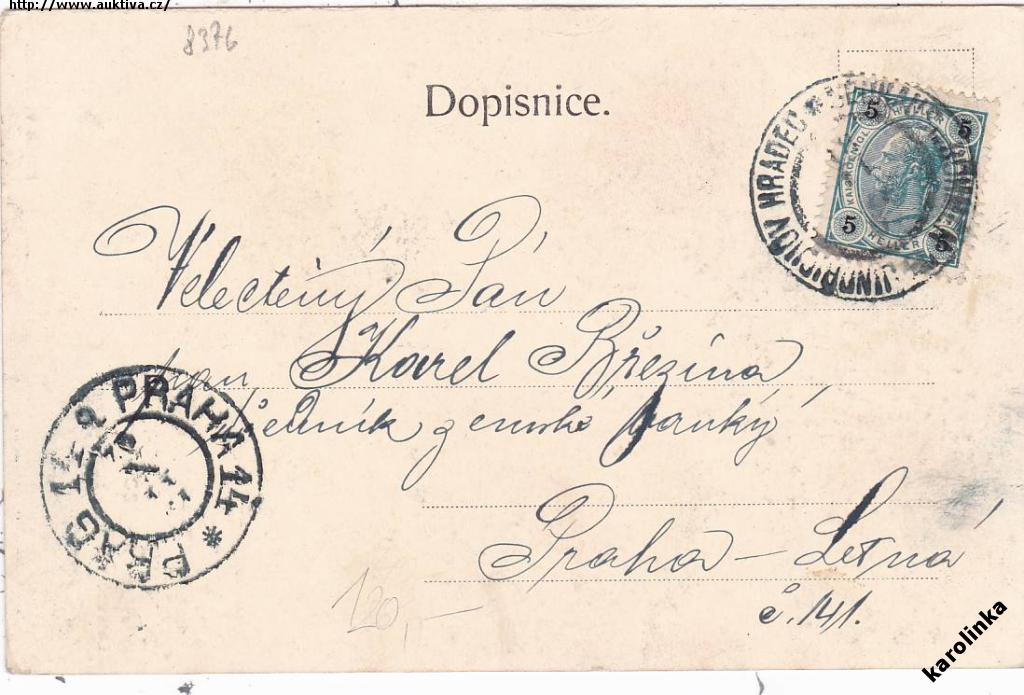 http://www.auktiva.cz/
8376
Dopisnice.
5 5 5 5
HELLER
JINDŘICHŮV HRADEC *
Velectěný Pán
pan
Karel Březina
úředník zemské banky
Praha - Letná
č. 141.
PRAHA 14 * PRAG 14
120,-
karolinka